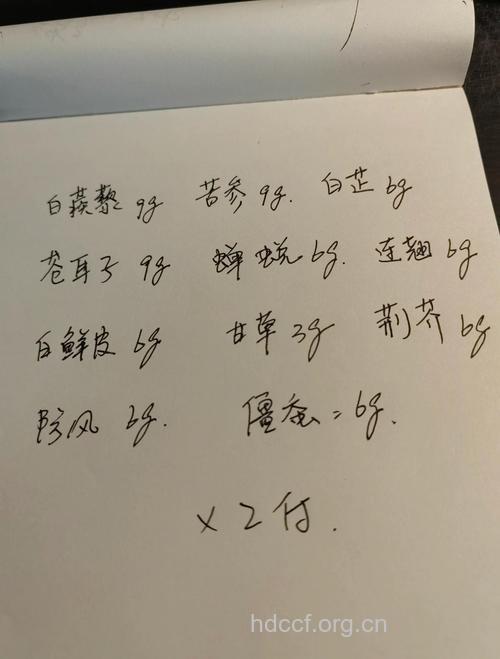 白蒺藜 9g 苦参 9g. 白芷 6g
苍耳子 9g 蝉蜕 6g. 连翘 6g
白鲜皮 6g 甘草 3g 荆芥 6g
防风 6g. 僵蚕 = 6g.
x 2付.
hdccf.org.cn